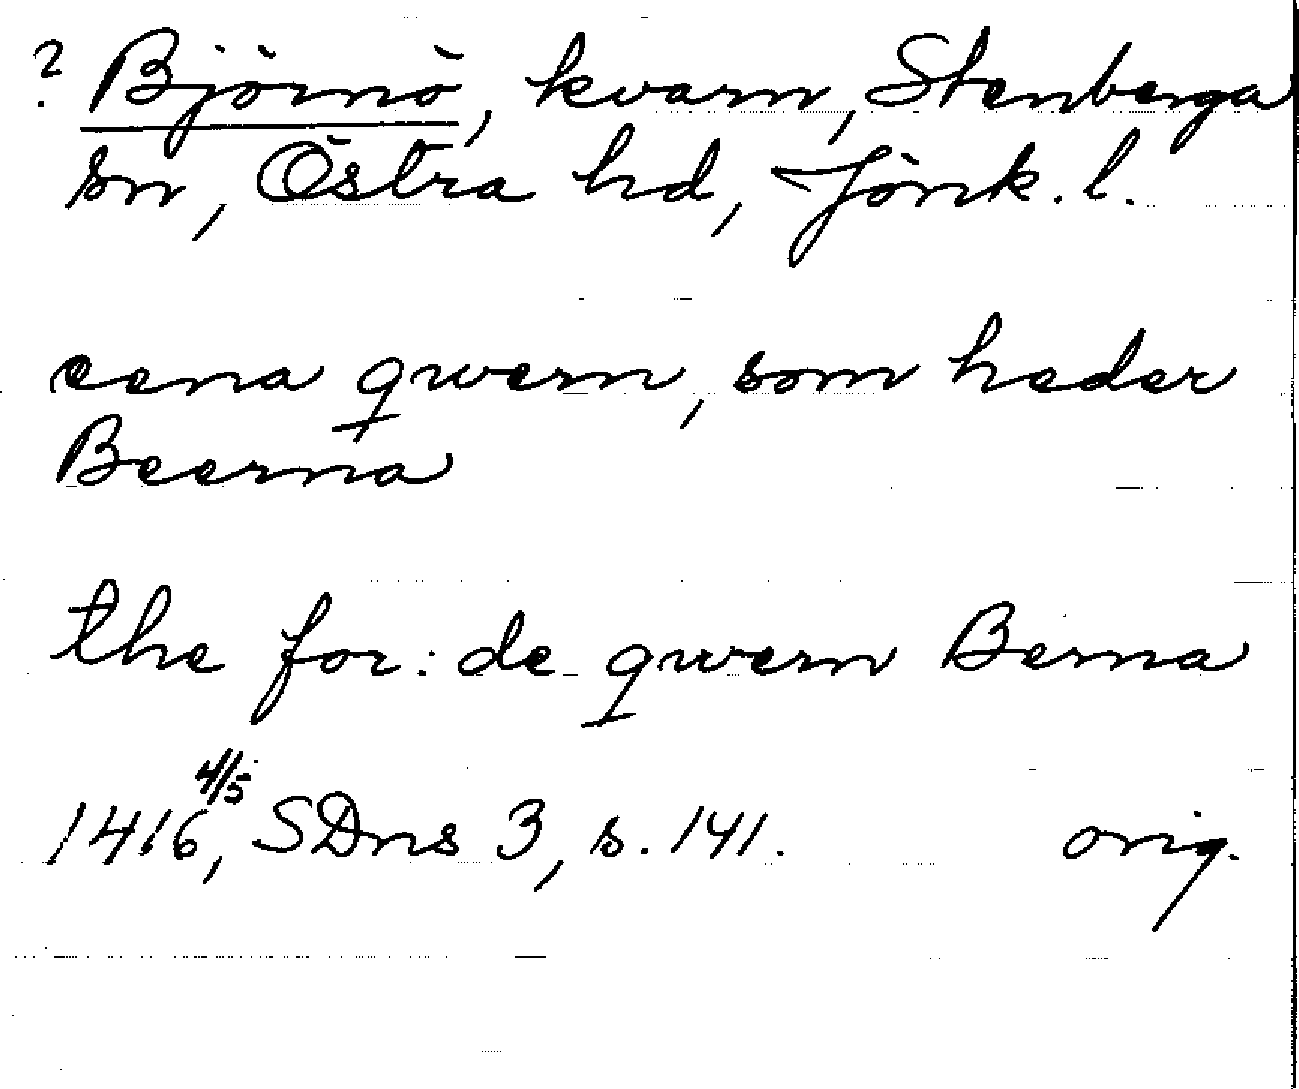 ? Björnö, kvarn, Stenberga
sn, Östra hd, Jönk. l.
eena qwern, som heder
Beerna
the for: de qwern Berna
1416 4/5, SDns 3, s. 141. orig.